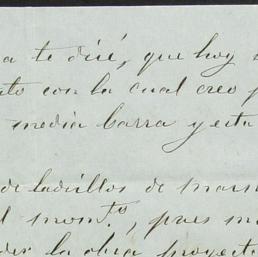 a te diré, que hoy
ato con la cual creo p
media barra y esta
de ladrillos de marm
l mom.to, pues m
der la obra proyecta